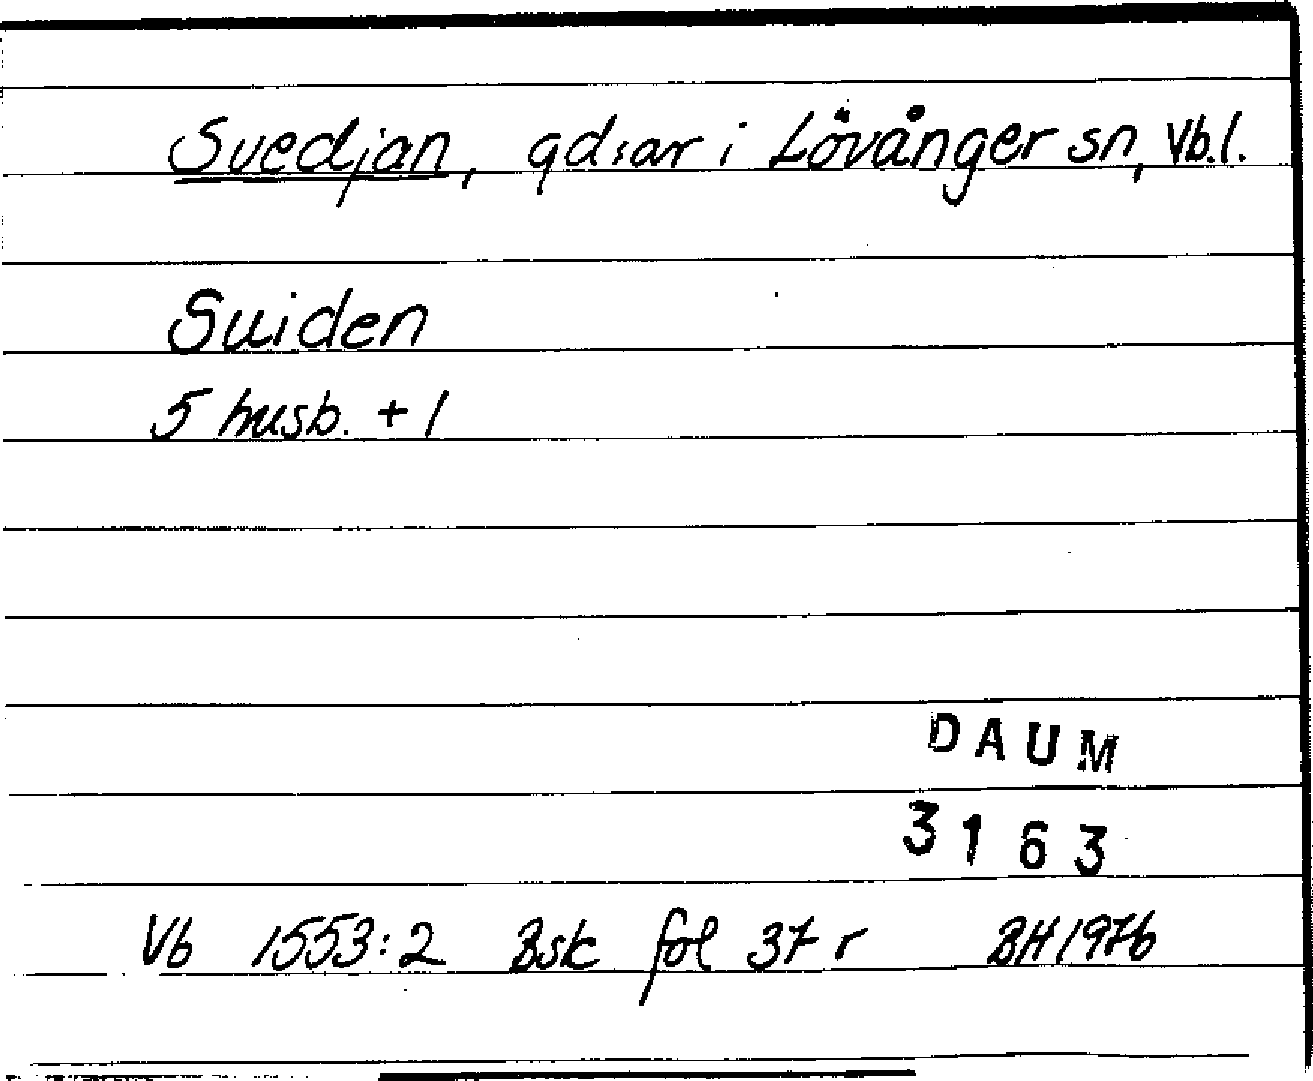 Svedjan, gd:ar i Lövånger sn, Vb.l.
Suiden
5 husb. + 1
DAUM
3163
Vb 1553:2 Bsk fol 37 r BH 1976